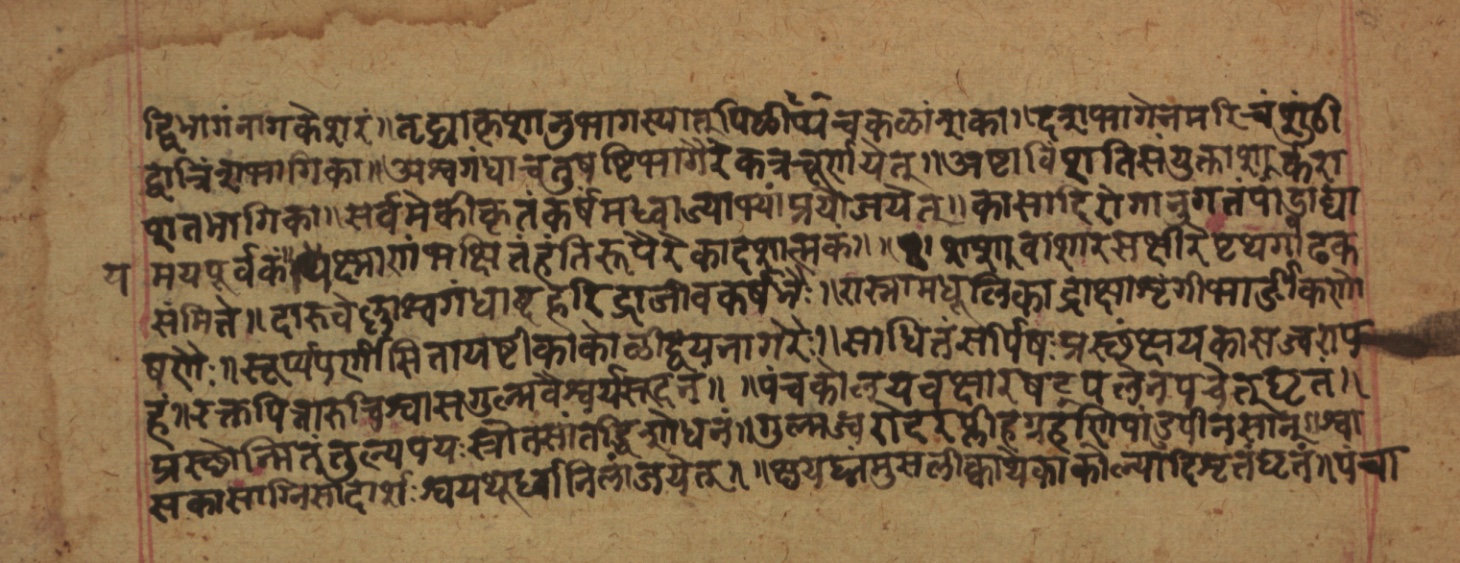 द्विभागंनागकेशरं॥तृद्घात्कृष्णानुभागस्यात्तुपिप्पळीचकळांशका।दशभागेनमरिचंशुंठी
द्वात्रिंशभागिका॥अश्वगंधाचतुषष्टिभागैरेकत्रचूर्णयेत्॥अष्टाविंशतिसंयुक्ताशर्करा
शतभागिका॥सर्वमेकीकृतंकर्षमध्वाज्याभ्यांप्रयोजयेत्॥कासादिरोगानुगतंपांड्वाद्या
य
मयपूर्वकं॥यक्ष्माणंभक्षितंहंतिरूपैरेकादशात्मकं॥॥
संमिते॥दारुवेल्लाश्वगंधाहरिद्राजीवकर्षभैः॥रास्नामधूलिकाद्राक्षाशृंगीभार्ङी
षणैः॥सूर्प्यपर्णीसितायष्टीकाकोळीद्वयनागरैः॥साधितंसर्पिषःप्रस्थंक्षयकासज्वराप
हं॥रक्तपित्तारुचिश्वासगुल्मवैश्वर्यसूदनं॥॥पंचकोलयवक्षारषट्पलेनपचेत्घृतं॥
प्रस्थोन्मितंतुल्यपयःस्रोतसांतद्विशोधनं॥गुल्मज्वरोदरप्लीहग्रहणिपांडुपीनसान्॥श्वा
सकासाग्निसादार्शःश्वयथूर्ध्वानिलांजयेत्॥॥क्षयघ्नंमुसलीक्वाथकाकोल्यादिशृतंघृतं॥पंचा